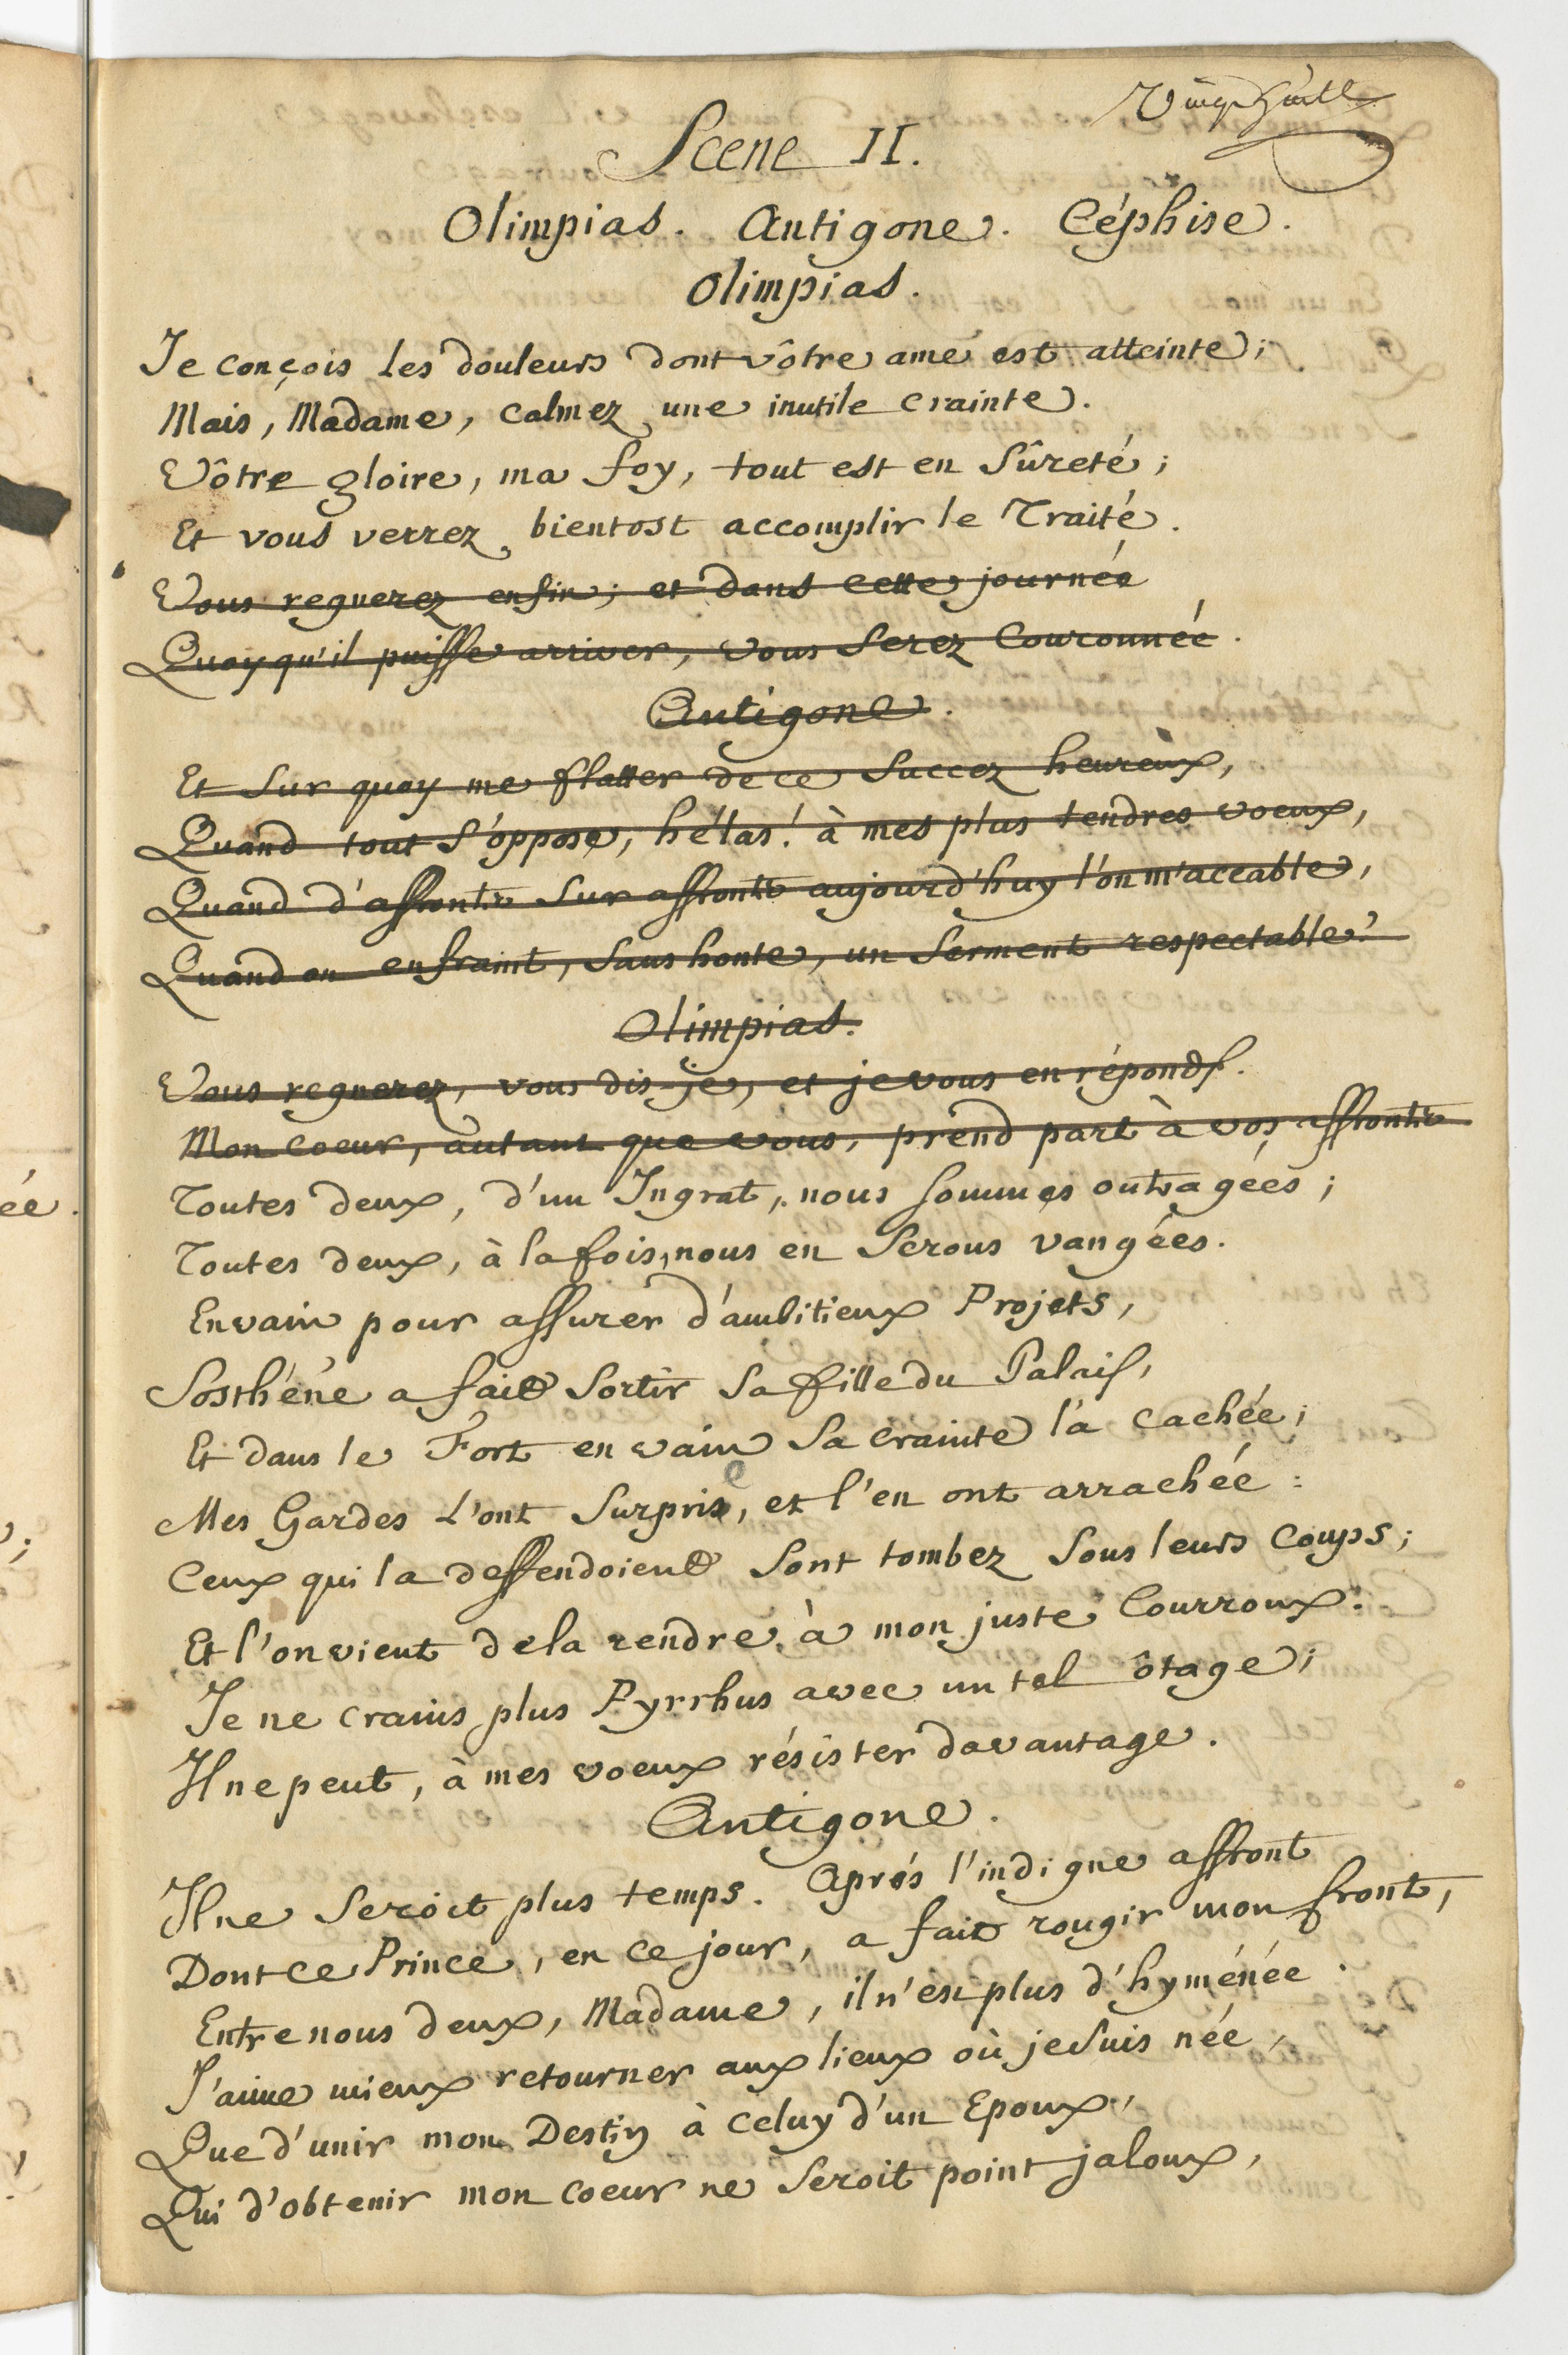 Vingt huit
Scene II.
Olimpias. Antigone. Céphise.
Olimpias.
Je conçois les douleurs dont vôtre ame est atteinte;
Mais, Madame, calmez une inutile crainte.
Vôtre gloire, ma foy, tout est en Sûreté;
Et vous verrez bientost accomplir le Traité.
Vous regnerez enfin; et dans cette journée
Quoy qu'il puisse arriver, vous Serez Couronnée.
Antigone.
Et Sur quoy me flatter de ce Succez heureux,
Quand tout S'oppose, hélas! à mes plus tendres voeux,
Quand d'affronts Sur affronts aujourd'huy l'on m'accable,
Quand on enfraint, Sans honte, un Serment respectable?
Olimpias.
Vous regnerez, vous dis-je, et je vous en réponds.
Mon coeur, autant que vous, prend part à vos affronts
Toutes deux, d'un Ingrat, nous sommes outragées;
Toutes deux, à la fois, nous en Serons vangées.
En vain pour assurer d'ambitieux Projets,
Sosthéne a fait Sortir Sa fille du Palais,
Et dans le Fort en vain Sa crainte l'a cachée;
Mes Gardes L'ont Surprise, et l'en ont arrachée:
Ceux qui la deffendoient Sont tombez Sous leurs Coups;
Et l'on vient de la rendre à mon juste Courroux.
Je ne crains plus Pyrrhus avec un tel ôtage;
Il ne peut, à mes voeux résister davantage.
Antigone.
Il ne Seroit plus temps. Aprés l'indigne affront
Dont ce Prince, en ce jour, a fait rougir mon front,
Entre nous deux, Madame, il n'est plus d'hyménée.
J'aime mieux retourner aux lieux où je Suis née,
Que d'unir mon Destin à Celuy d'un Epoux,
Qui d'obtenir mon coeur ne Seroit point jaloux,